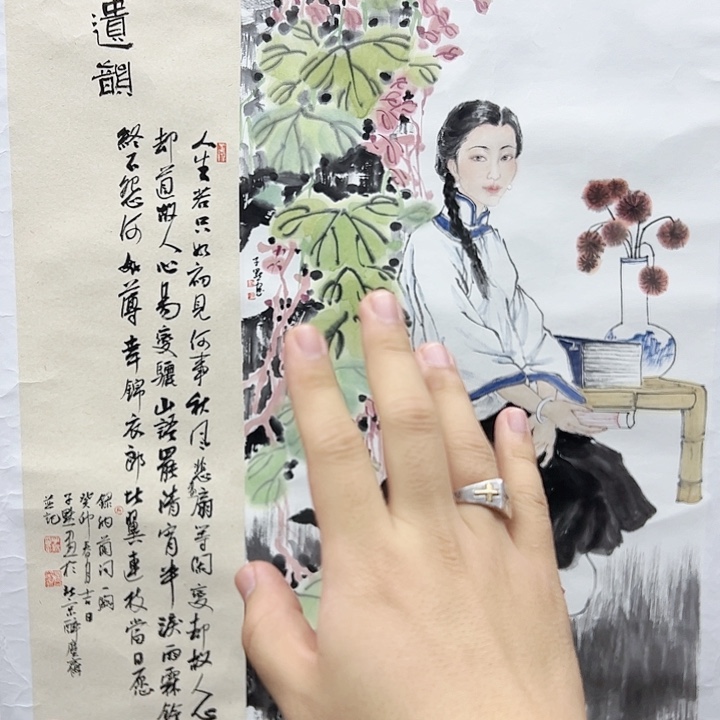 遺韻
人生若只如初見何事秋风悲扇等闲變却故人心
却道故人心易變驪山語罷清宵半淚雨霖鈴
終不怨何如薄幸錦衣郎比翼連枝當日愿
錄納蘭詞一闋
癸卯春月 日
子默畫於北京醉墨齋
並記
子默畫